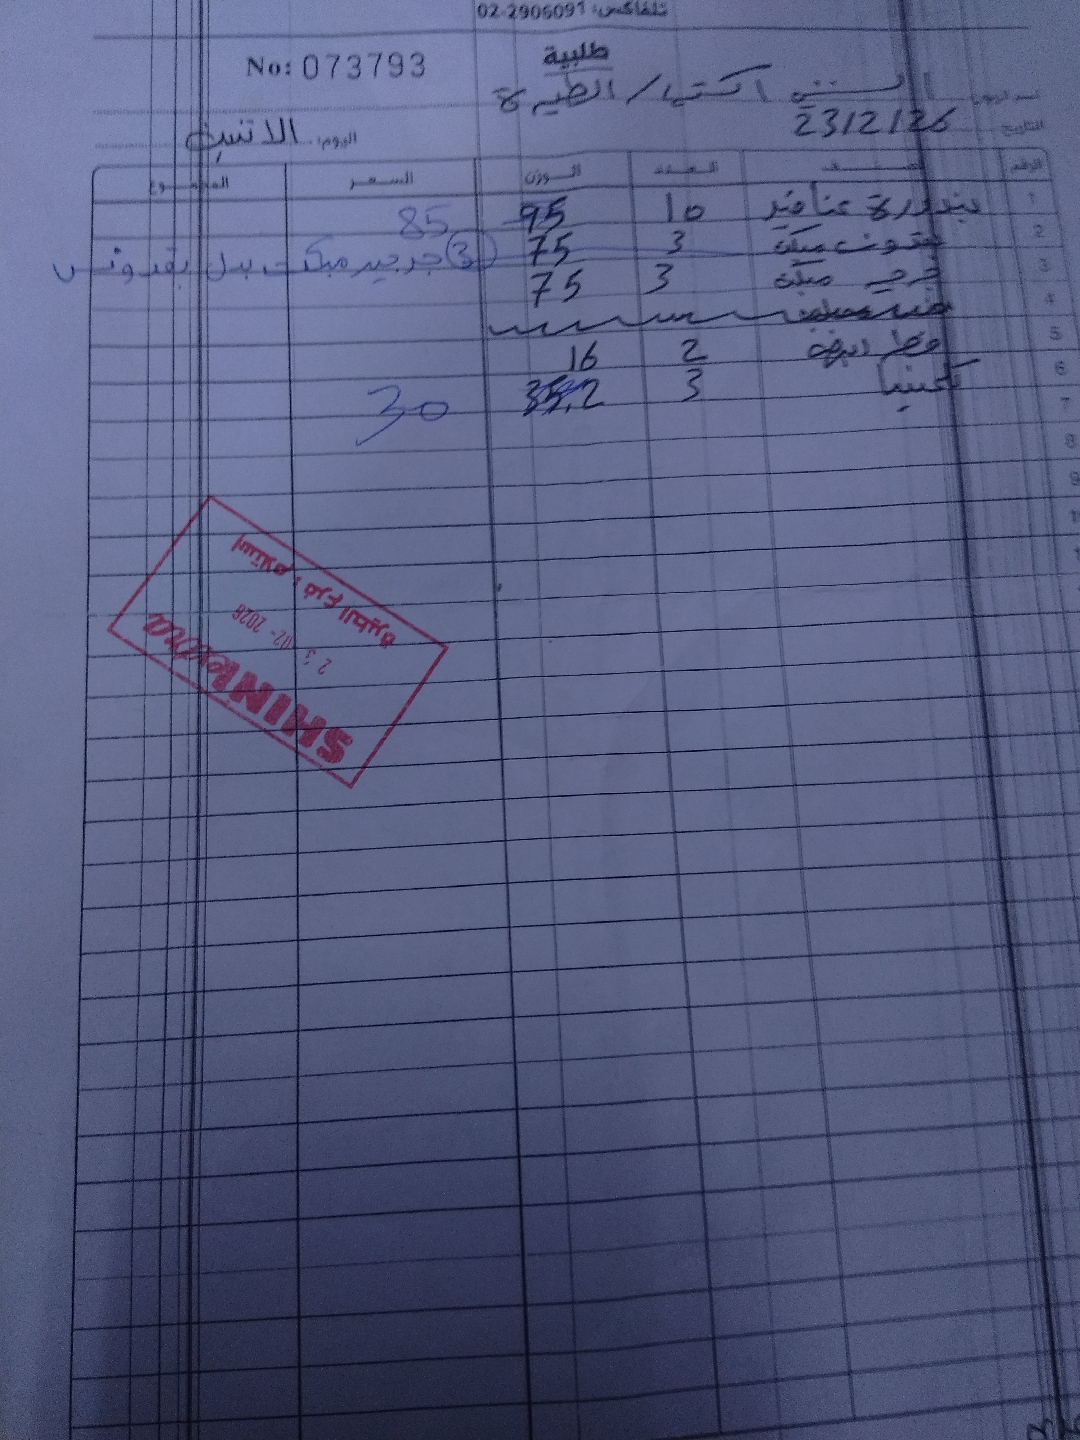 تلفاكس: 02-2906091
طلبية
No: 073793
اكتب / الطيرة
التاريخ: 23/2/26
اليوم: الاثنين
الرقم الصنف العدد الوزن السعر المجموع
1 بندورة عناقيد 10 95 85
2 بقدونس مبكت 3 75 (3) جرجير مبكت بدل بقدونس
3 جرجير مبكت 3 75
4
5 فطر ابيض 2 16
6 كستنا 3 35,2 30
7
8
9
SHINKevna
23-02-2026
استلام : فرع الطيرة